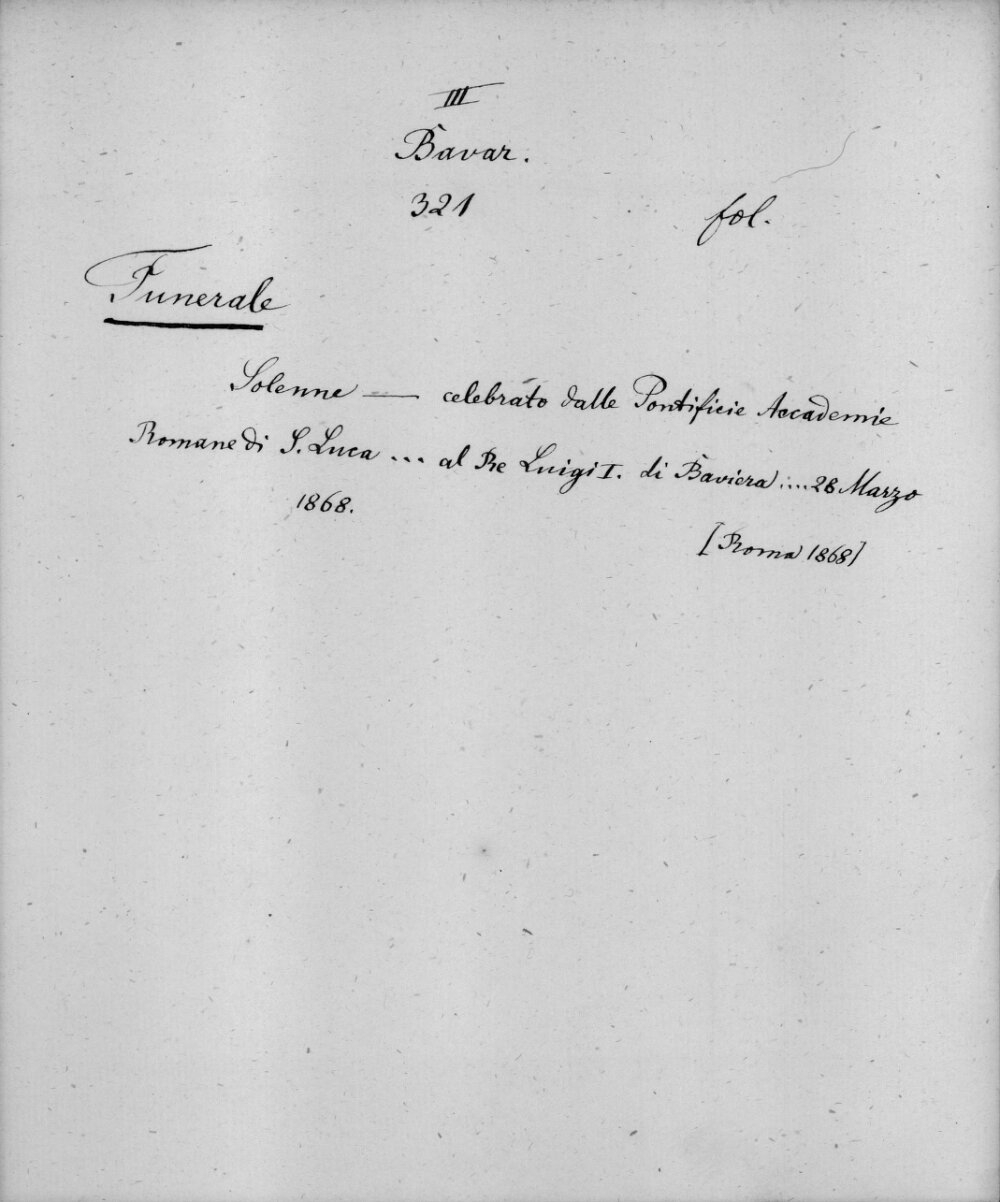 III
Bavar.
321 fol.
Funerale
Solenne — celebrato dalle Pontificie Accademie
Romane di S. Luca ... al Re Luigi I. di Baviera .... 28 Marzo
1868.
[Roma 1868]